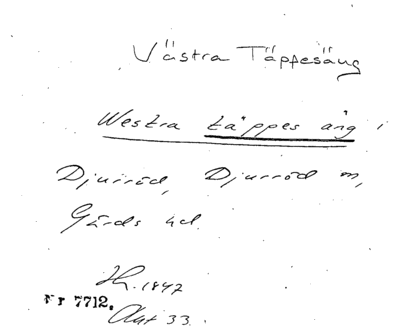 Västra Täppesäng
Westra täppes äng
Djurröd, Djurröd m,
Gärds hd.
1847
Nr 7712.
Akt 33.